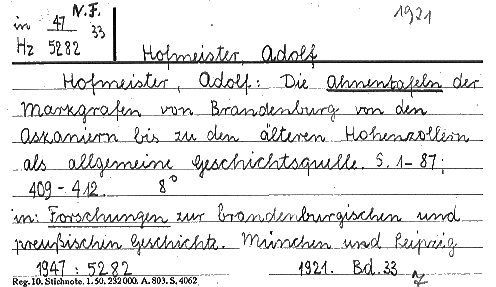 in 47 N.F. 33
Hz 5282
1921
Hofmeister, Adolf
Hofmeister, Adolf: Die Ahnentafeln der
Markgrafen von Brandenburg von den
Askaniern bis zu den älteren Hohenzollern
als allgemeine Geschichtsquelle. S. 1-87;
409-412. 8°
in: Forschungen zur brandenburgischen und
preußischen Geschichte. München und Leipzig
1947: 5282 1921. Bd. 33
Reg. 10. Stichnote. 1. 50. 232000. A. 803. S. 4062